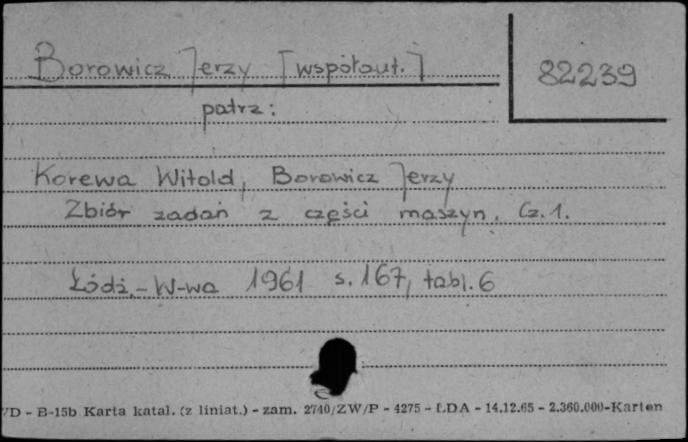 Borowicz Jerzy [współaut.]
82239
patrz:
Korewa Witold, Borowicz Jerzy
Zbiór zadań z części maszyn. Cz. 1.
Łódź.-W-wa 1961 s. 167, tabl. 6
/D - B-15b Karta katal. (z liniat.) - zam. 2740/ZW/P - 4275 - ŁDA - 14.12.65 - 2.360.000-Karten